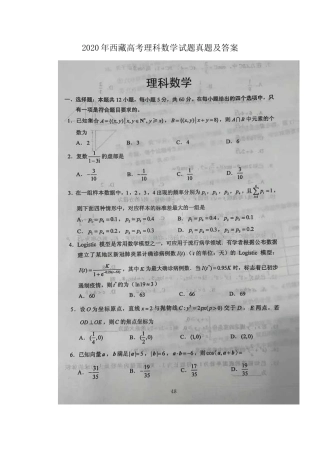 2020年西藏高考理科数学试题真题及答案
理科数学
一、选择题：本题共12小题，每小题5分，共60分。在每小题给出的四个选项中，只
有一项是符合题目要求的。
1．已知集合A={(x,y)|x,y∈N*,y≥x}，B={(x,y)|x+y=8}，则A∩B中元素的个
数为
A．2 B．3 C．4 D．6
2．复数1/(1-3i)的虚部是
A．-3/10 B．-1/10 C．1/10 D．3/10
3．在一组样本数据中，1，2，3，4出现的频率分别为p₁，p₂，p₃，p₄，且∑pᵢ=1，
则下面四种情形中，对应样本的标准差最大的一组是
A．p₁=p₄=0.1，p₂=p₃=0.4 B．p₁=p₄=0.4，p₂=p₃=0.1
C．p₁=p₄=0.2，p₂=p₃=0.3 D．p₁=p₄=0.3，p₂=p₃=0.2
4．Logistic 模型是常用数学模型之一，可应用于流行病学领域．有学者根据公布数据
建立了某地区新冠肺炎累计确诊病例数I(t)（t的单位：天）的 Logistic 模型：
I(t)=K/(1+e^(-0.23(t-53)))，其中K为最大确诊病例数．当I(t*)=0.95K时，标志着已初步
遏制疫情，则t*约为（ln19≈3）
A．60 B．63 C．66 D．69
5．设O为坐标原点，直线x=2与抛物线C:y²=2px(p>0)交于D，E两点，若
OD⊥OE，则C的焦点坐标为
A．(1/4,0) B．(1/2,0) C．(1,0) D．(2,0)
6．已知向量a，b满足|a|=5，|b|=6，a·b=-6，则cos⟨a,a+b⟩=
A．-31/35 B．-19/35 C．17/35 D．19/35